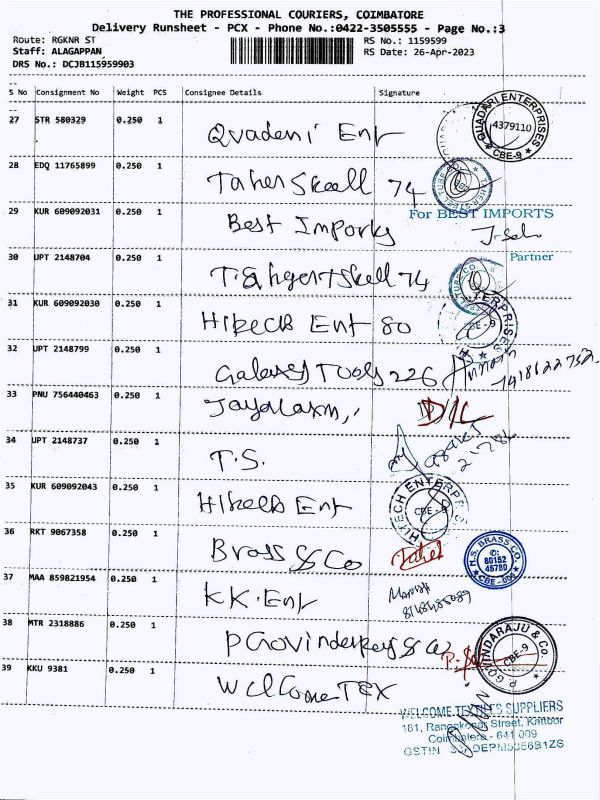 THE PROFESSIONAL COURIERS, COIMBATORE
Delivery Runsheet - PCX - Phone No.:0422-3505555 - Page No.:3
Route: RGKNR ST
RS No.: 1159599
Staff: ALAGAPPAN
RS Date: 26-Apr-2023
DRS No.: DCJB115959903
S No Consignment No Weight PCS Consignee Details Signature
27 STR 580329 0.250 1 Quadeni Ent
QUADARI ENTERPRISES 4379110 CBE-9
28 EDQ 11765899 0.250 1 Taher 74
29 KUR 609092031 0.250 1 Best Imports
For BEST IMPORTS
Partner
30 UPT 2148704 0.250 1 74
31 KUR 609092030 0.250 1 Hiteck Ent 80
32 UPT 2148799 0.250 1 Galaxy Tools 226
33 PNU 756440463 0.250 1
34 UPT 2148737 0.250 1 T.S.
35 KUR 609092043 0.250 1 Ent
HITECH ENTERPRI CBE-9
36 RKT 9067358 0.250 1 Brass & Co
N.S. BRASS CO. 80152 45780 CBE-009
37 MAA 859821954 0.250 1 KK.Ent
38 MTR 2318886 0.250 1
P. GOVINDARAJU & Co. CBE-9
39 KKU 9381 0.250 1 Welcome TEX
WELCOME TEXTILES SUPPLIERS
Street, Kattoor
Coimbatore - 641 009
GSTIN